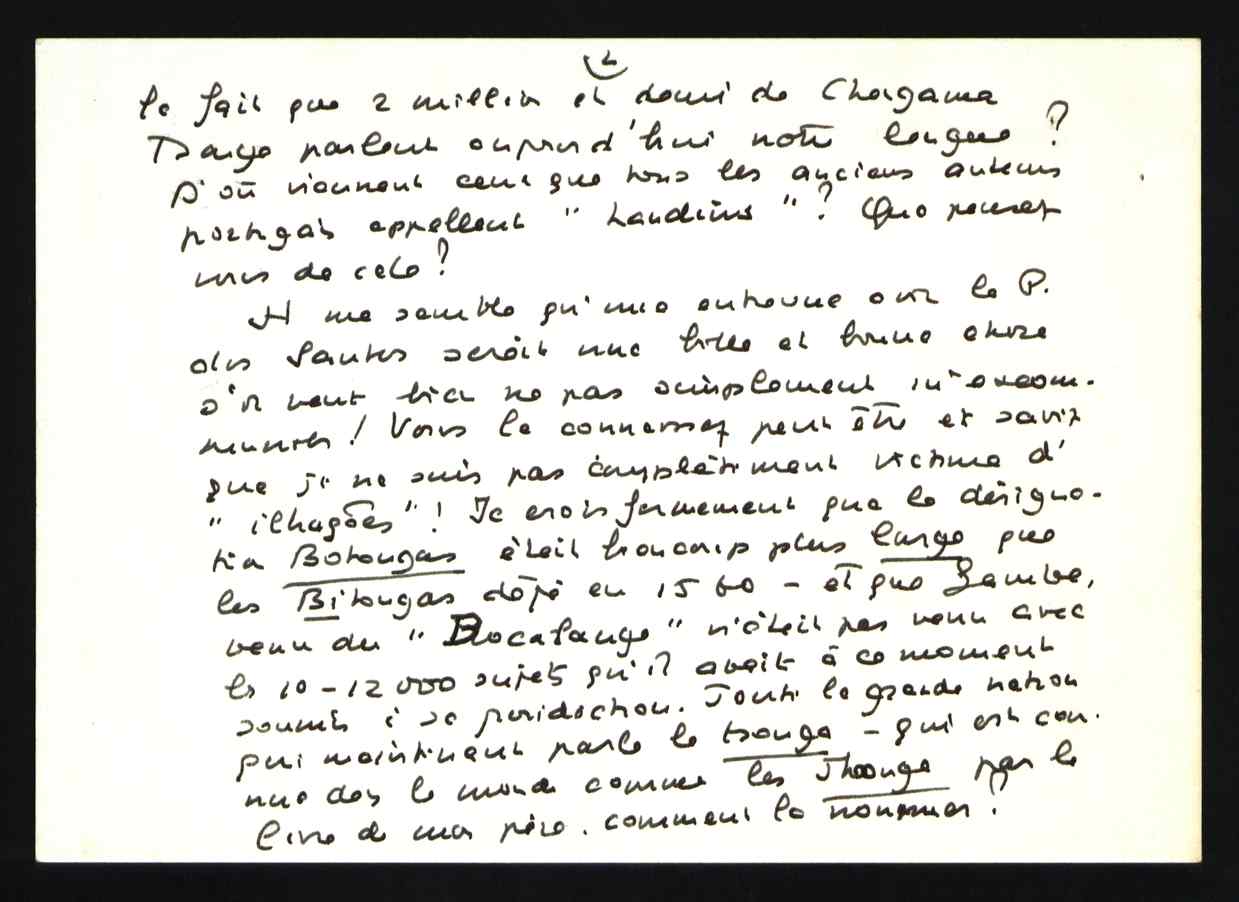 2
le fait que 2 million et demi de Changana
Tsonga parlent aujourd'hui notre langue ?
D'où viennent ceux que tous les anciens auteurs
portugais appellent " Landins " ? Que pensez
vous de cela ?
Il me semble qu'une entrevue avec le P.
dos Santos serait une belle et bonne chose
s'il veut bien ne pas simplement m'excom-
munier ! Vous le connaissez peut être et savez
que je ne suis pas complètement victime d'
" ilhações " ! Je crois fermement que la désigna-
tion Botongas était beaucoup plus large que
les Bitongas déjà en 1560 - et que Gamba,
venu du " Bocalanga " n'était pas venu avec
les 10-12 000 sujets qu'il avait à ce moment
soumis à sa juridiction. Toute la grande nation
qui maintenant parle le tsonga - qui est con-
nue dans le monde comme les Thonga par le
livre de mon père. comment la nommer ?